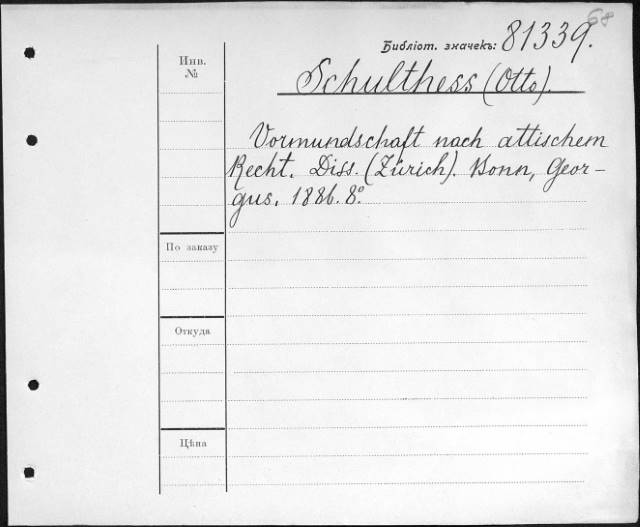 68
Библіот. значекъ: 81339.
Инв.
№
Schulthess (Otto).
Vormundschaft nach attischem
Recht. Diss. (Zürich). Bonn, Geor-
gus. 1886. 8º.
По заказу
Откуда
Цѣна